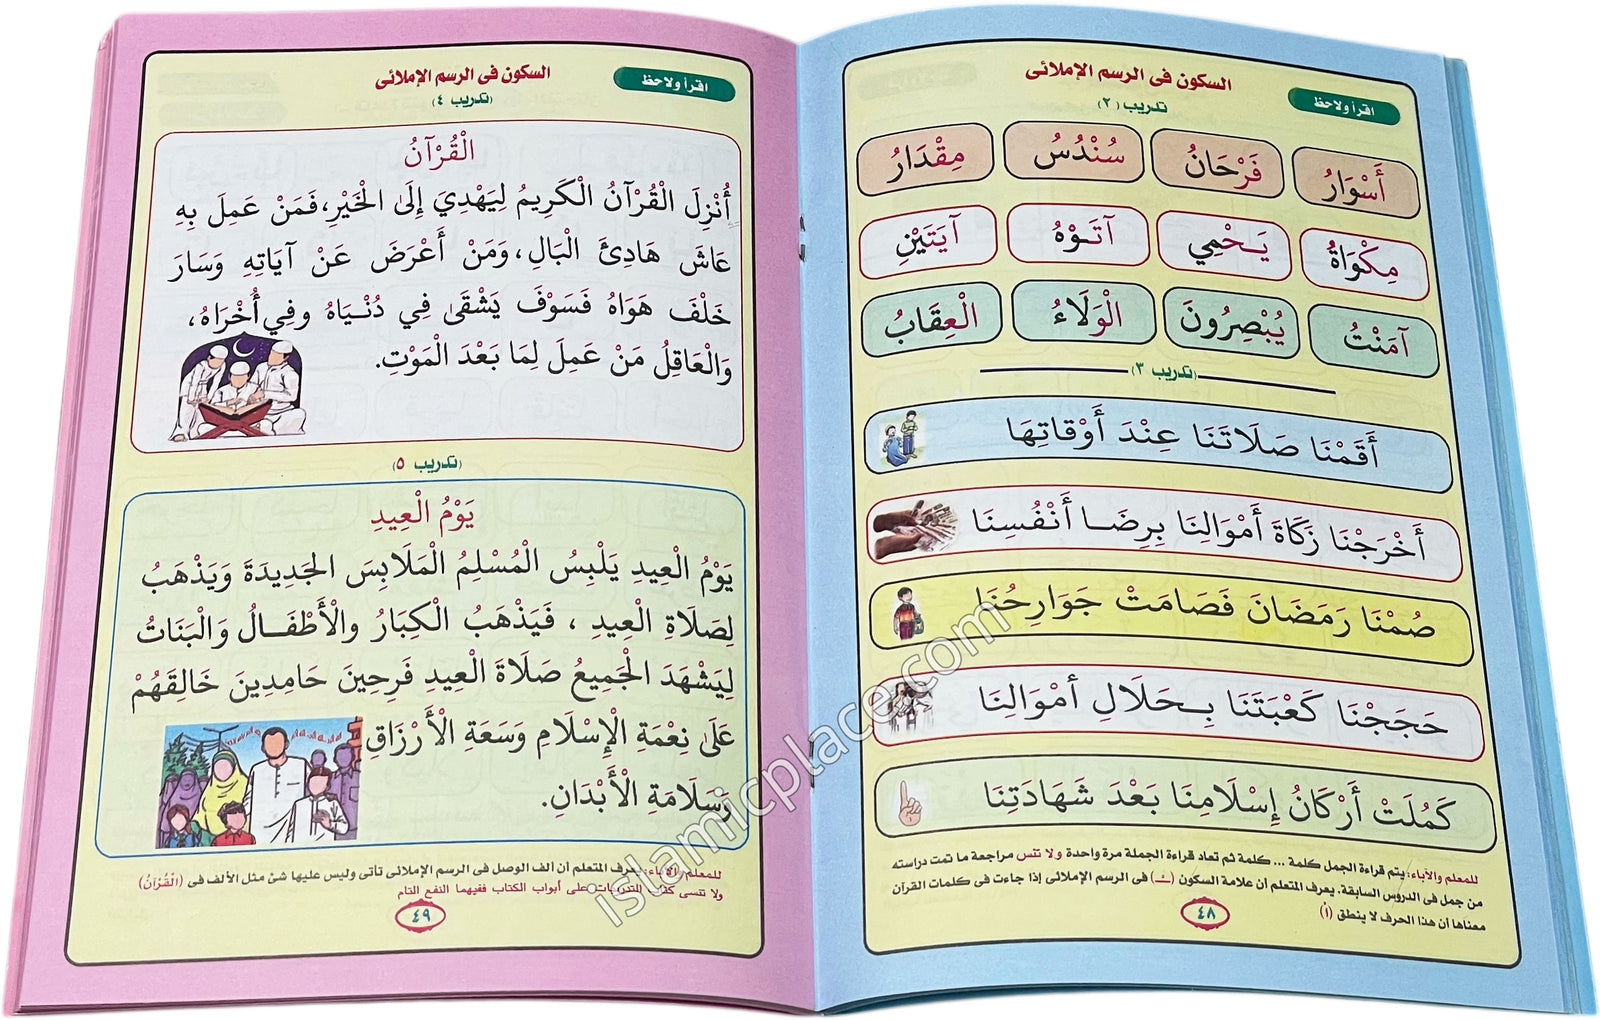 السكون فى الرسم الإملائى
اقرأ ولاحظ
(تدريب ٢)
أَسْوَارُ فَرْحَانُ سُنْدُسُ مِقْدَارُ
مِكْوَاةُ يَحْمِي آتَوْهُ آيَتَيْنِ
آمَنْتُ يُبْصِرُونَ الْوَلَاءُ الْعِقَابُ
(تدريب ٣)
أَقَمْنَا صَلَاتَنَا عِنْدَ أَوْقَاتِهَا
أَخْرَجْنَا زَكَاةَ أَمْوَالِنَا بِرِضَا أَنْفُسِنَا
صُمْنَا رَمَضَانَ فَصَامَتْ جَوَارِحُنَا
حَجَجْنَا كَعْبَتَنَا بِحَلَالِ أَمْوَالِنَا
كَمُلَتْ أَرْكَانُ إِسْلَامِنَا بَعْدَ شَهَادَتِنَا
للمعلم والآباء: يتم قراءة الجمل كلمة ... كلمة ثم تعاد قراءة الجملة مرة واحدة ولا تنس مراجعة ما تمت دراسته
من جمل فى الدروس السابقة. يعرف المتعلم أن علامة السكون (ـْـ) فى الرسم الإملائى إذا جاءت فى كلمات القرآن
معناها أن هذا الحرف لا ينطق (اْ)
٤٨
السكون فى الرسم الإملائى
اقرأ ولاحظ
(تدريب ٤)
الْقُرْآنُ
أُنْزِلَ الْقُرْآنُ الْكَرِيمُ لِيَهْدِيَ إِلَى الْخَيْرِ، فَمَنْ عَمِلَ بِهِ
عَاشَ هَادِئَ الْبَالِ، وَمَنْ أَعْرَضَ عَنْ آيَاتِهِ وَسَارَ
خَلْفَ هَوَاهُ فَسَوْفَ يَشْقَى فِي دُنْيَاهُ وفِي أُخْرَاهُ،
وَالْعَاقِلُ مَنْ عَمِلَ لِمَا بَعْدَ الْمَوْتِ.
(تدريب ٥)
يَوْمُ الْعِيدِ
يَوْمُ الْعِيدِ يَلْبِسُ الْمُسْلِمُ الْمَلَابِسَ الْجَدِيدَةَ وَيَذْهَبُ
لِصَلَاةِ الْعِيدِ ، فَيَذْهَبُ الْكِبَارُ والْأَطْفَالُ وَالْبَنَاتُ
لِيَشْهَدَ الْجَمِيعُ صَلَاةَ الْعِيدِ فَرِحِينَ حَامِدِينَ خَالِقَهُمْ
عَلَى نِعْمَةِ الْإِسْلَامِ وَسَعَةِ الْأَرْزَاقِ
وَسَلَامَةِ الْأَبْدَانِ.
للمعلم والآباء: يعرف المتعلم أن ألف الوصل فى الرسم الإملائى تأتى وليس عليها شئ مثل الألف فى (الْقُرْآنُ)
ولا تنسى كتابة التدريبات على أبواب الكتاب ففيهما النفع التام
٤٩
islamicplace.com